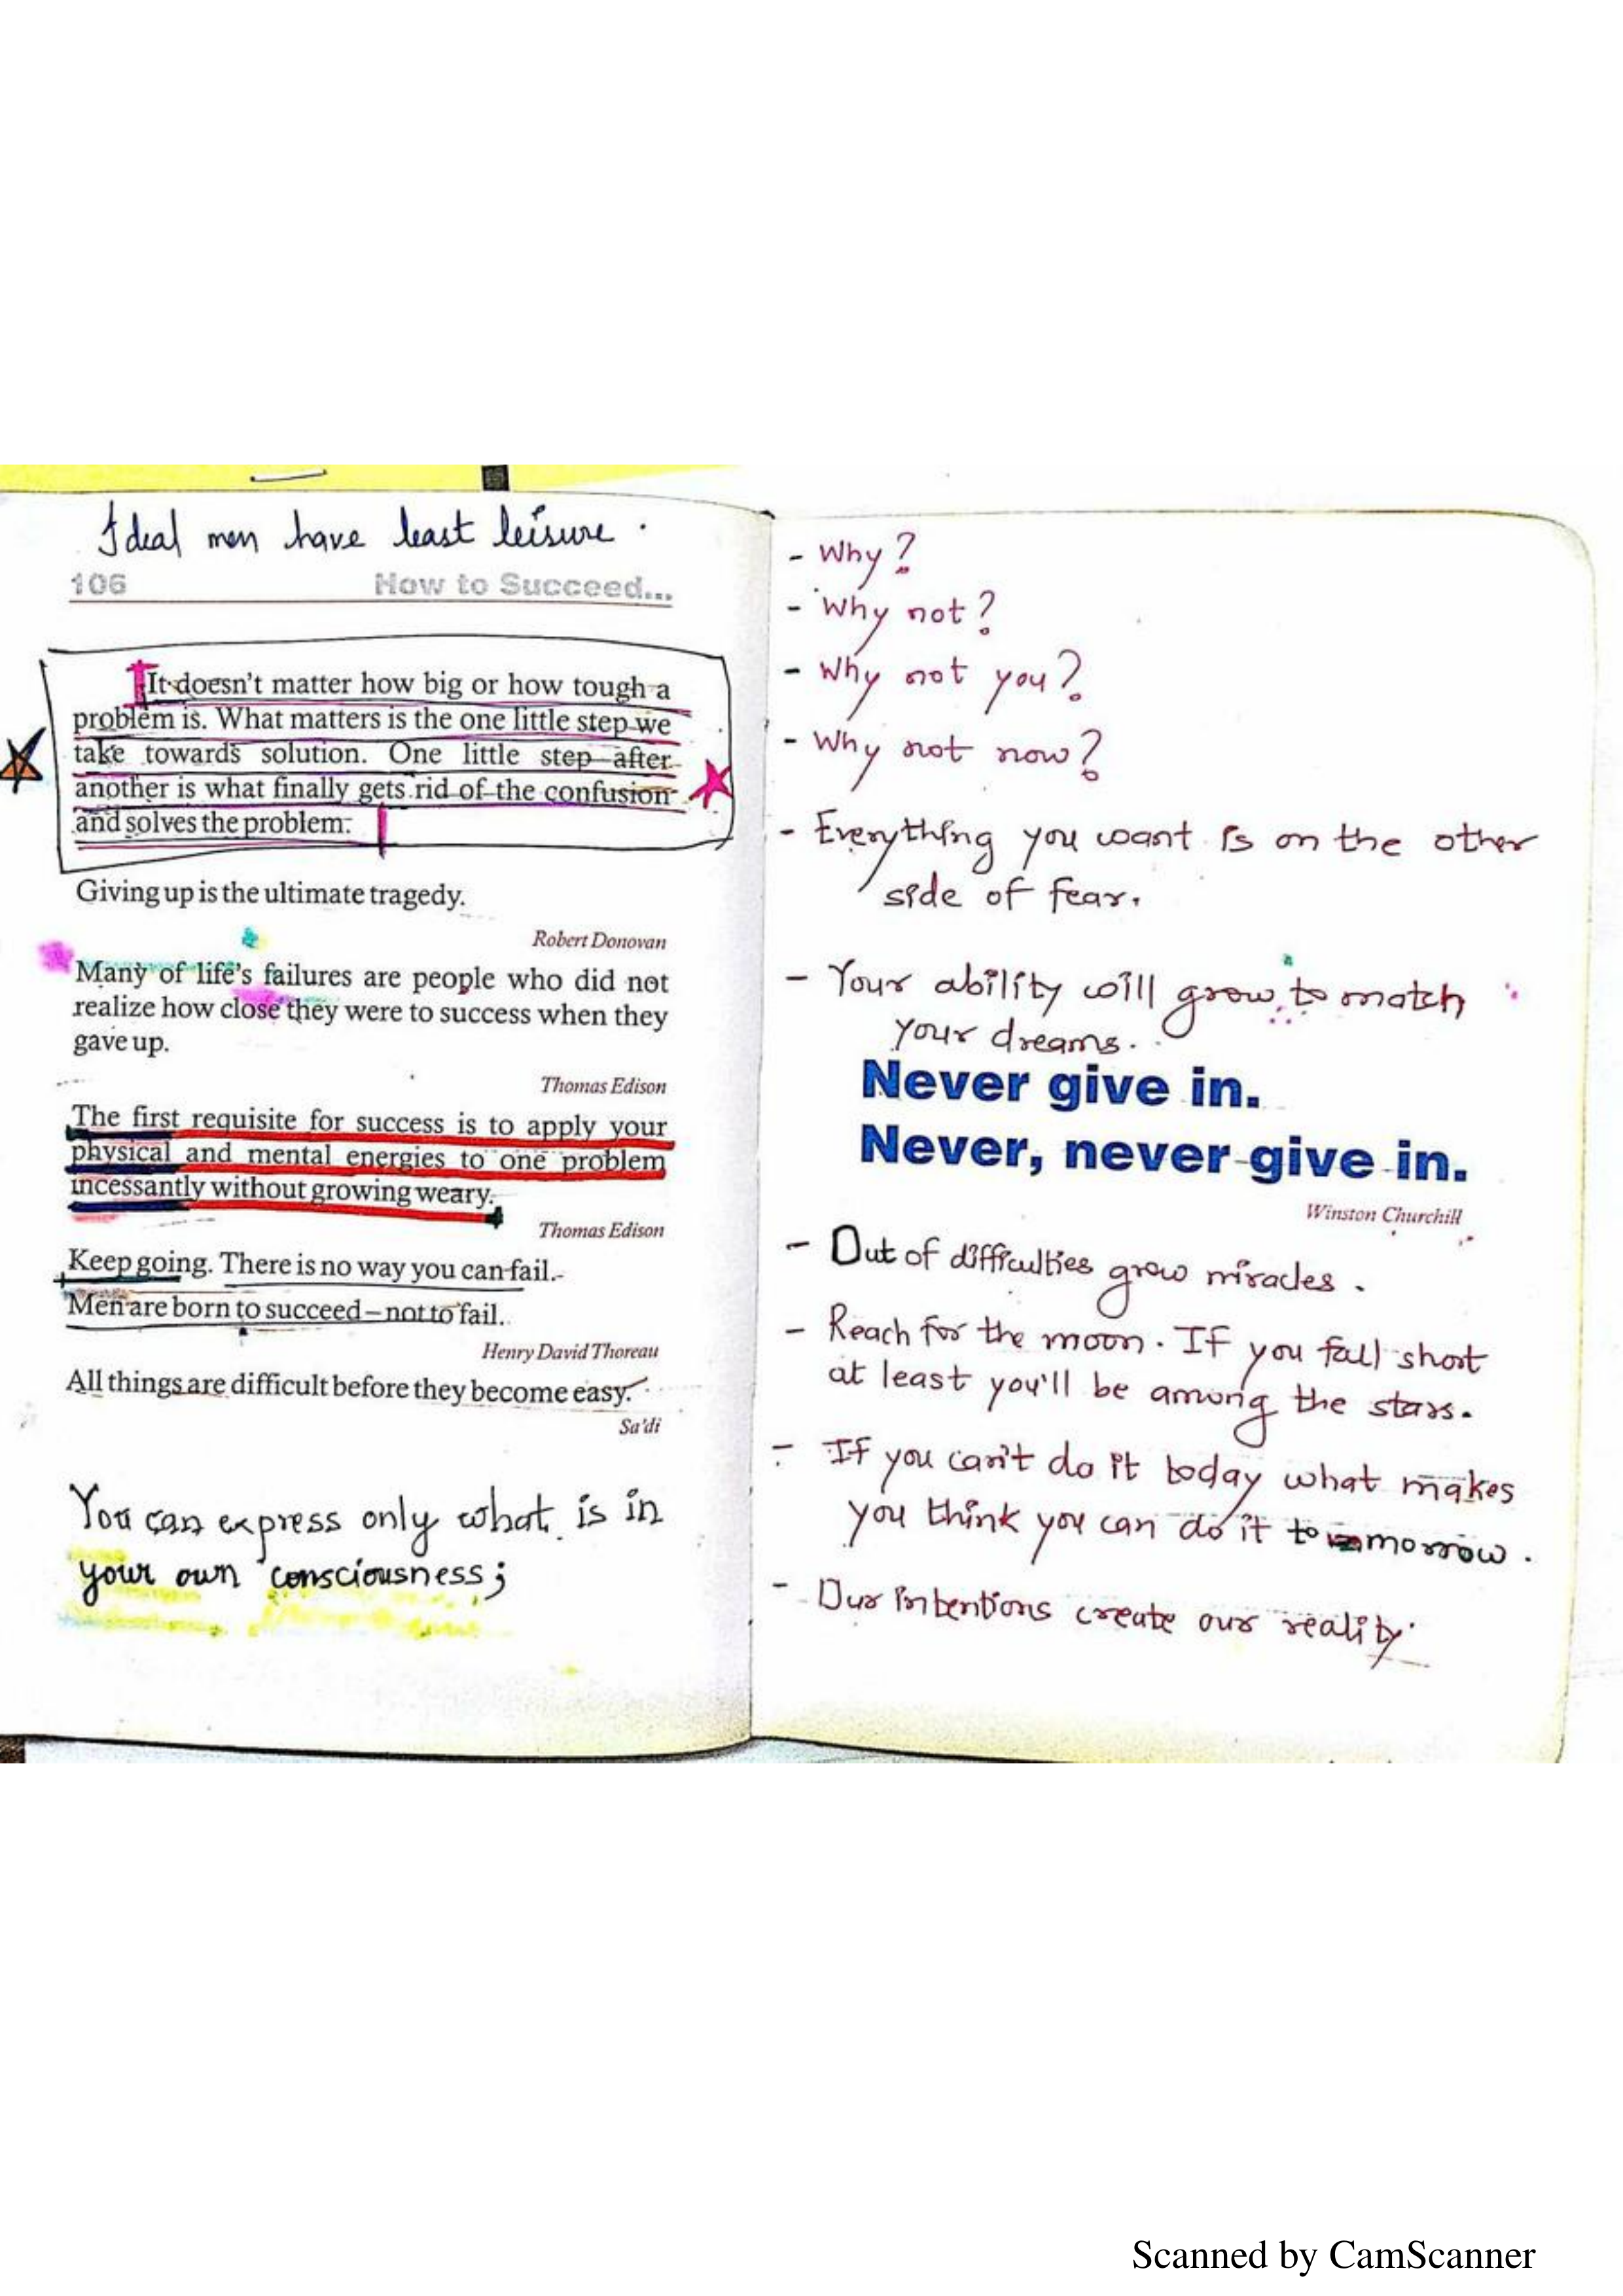 Ideal men have least leisure.
106 How to Succeed...
It doesn't matter how big or how tough a
problem is. What matters is the one little step we
take towards solution. One little step after
another is what finally gets rid of the confusion
and solves the problem.
Giving up is the ultimate tragedy.
Robert Donovan
Many of life's failures are people who did not
realize how close they were to success when they
gave up.
Thomas Edison
The first requisite for success is to apply your
physical and mental energies to one problem
incessantly without growing weary.
Thomas Edison
Keep going. There is no way you can fail.
Men are born to succeed – not to fail.
Henry David Thoreau
All things are difficult before they become easy.
Sa'di
You can express only what is in
your own consciousness;
- Why?
- Why not?
- Why not you?
- Why not now?
- Everything you want is on the other
side of fear.
- Your ability will grow to match
your dreams.
Never give in.
Never, never give in.
Winston Churchill
- Out of difficulties grow miracles.
- Reach for the moon. If you fall short
at least you'll be among the stars.
- If you can't do it today what makes
you think you can do it tomorrow.
- Our intentions create our reality.
Scanned by CamScanner